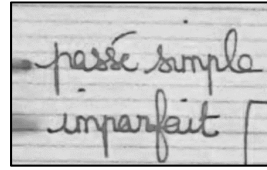 passé simple
imparfait